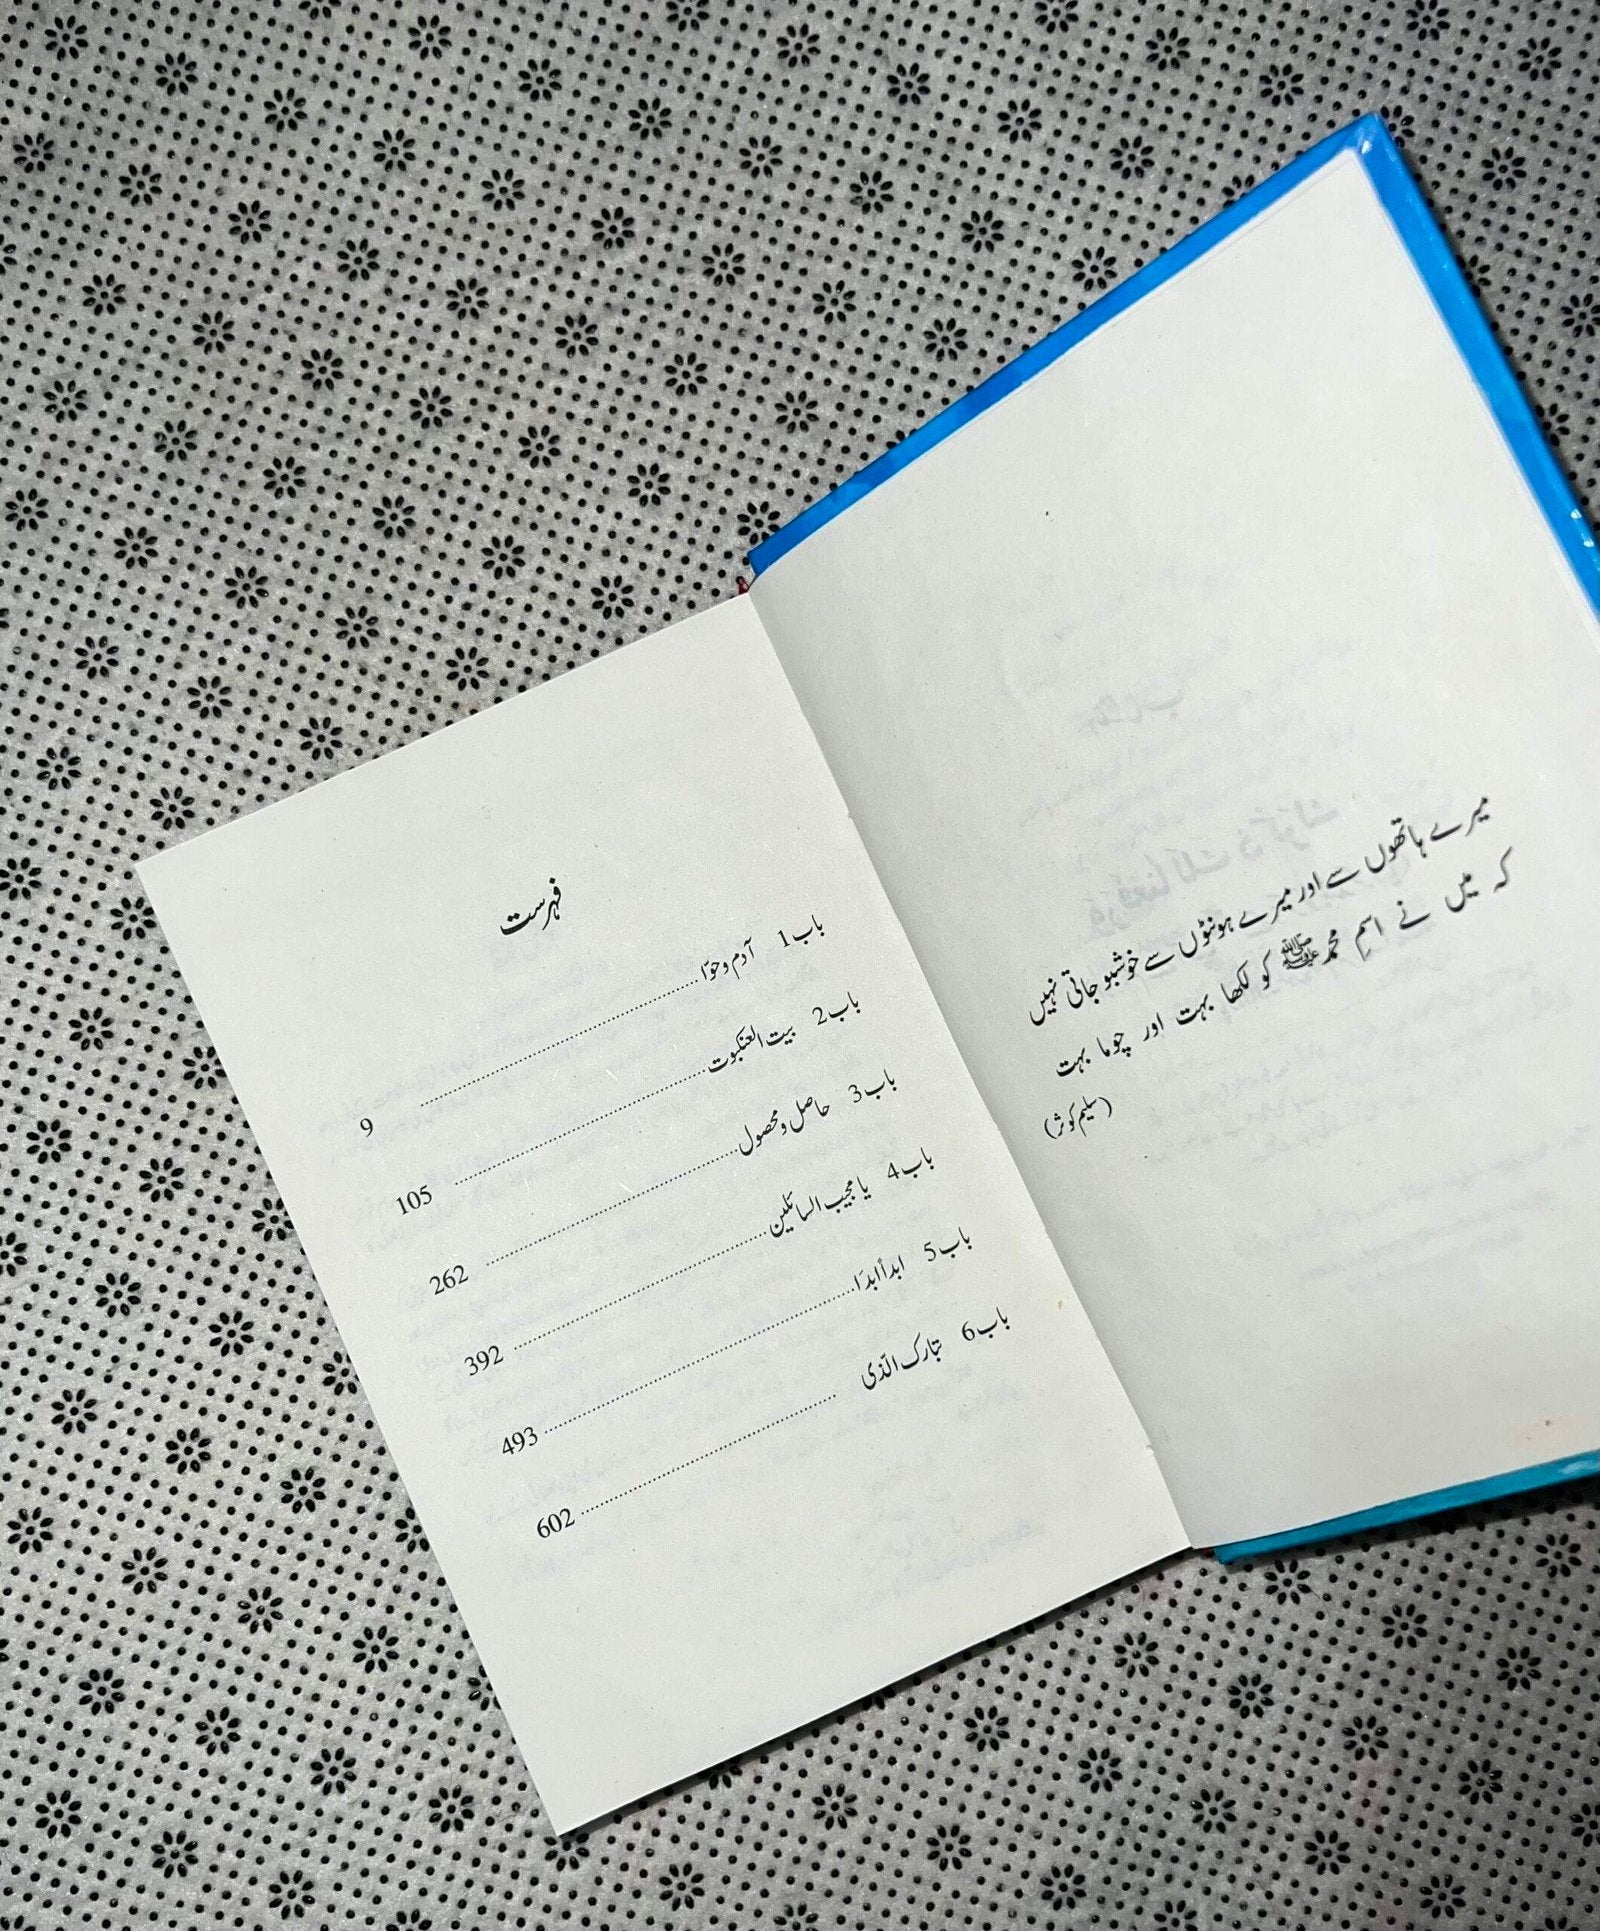 میرے ہاتھوں سے اور میرے ہونٹوں سے خوشبو جاتی نہیں
کہ میں نے اسمِ محمدﷺ کو لکھا بہت اور چوما بہت
(سلیم کوثر)
فہرست
باب 1 آدم و حوّا.......................... 9
باب 2 بیت العنکبوت.......................... 105
باب 3 حاصل و محصول.......................... 262
باب 4 یا مجیب السائلین.......................... 392
باب 5 ابداً ابدًا.......................... 493
باب 6 تبارک الّذی.......................... 602